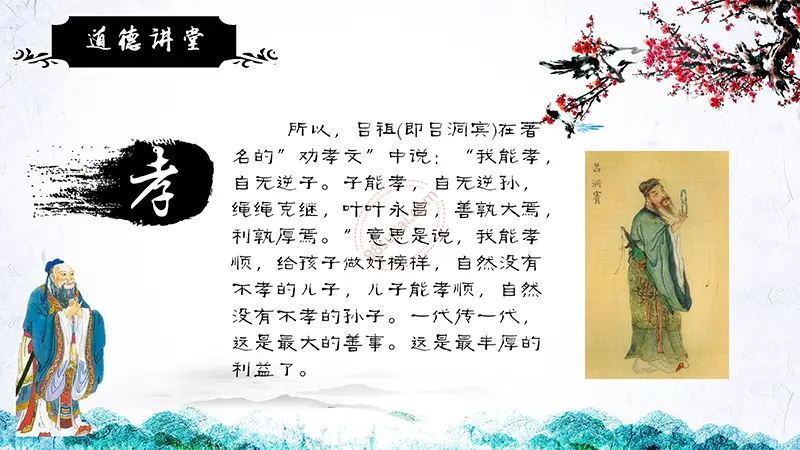 道德讲堂
孝
所以，吕祖(即吕洞宾)在著
名的"劝孝文"中说："我能孝，
自无逆子。子能孝，自无逆孙，
绳绳克继，叶叶永昌，善孰大焉，
利孰厚焉。"意思是说，我能孝
顺，给孩子做好榜样，自然没有
不孝的儿子，儿子能孝顺，自然
没有不孝的孙子。一代传一代，
这是最大的善事。这是最丰厚的
利益了。
吕洞賓